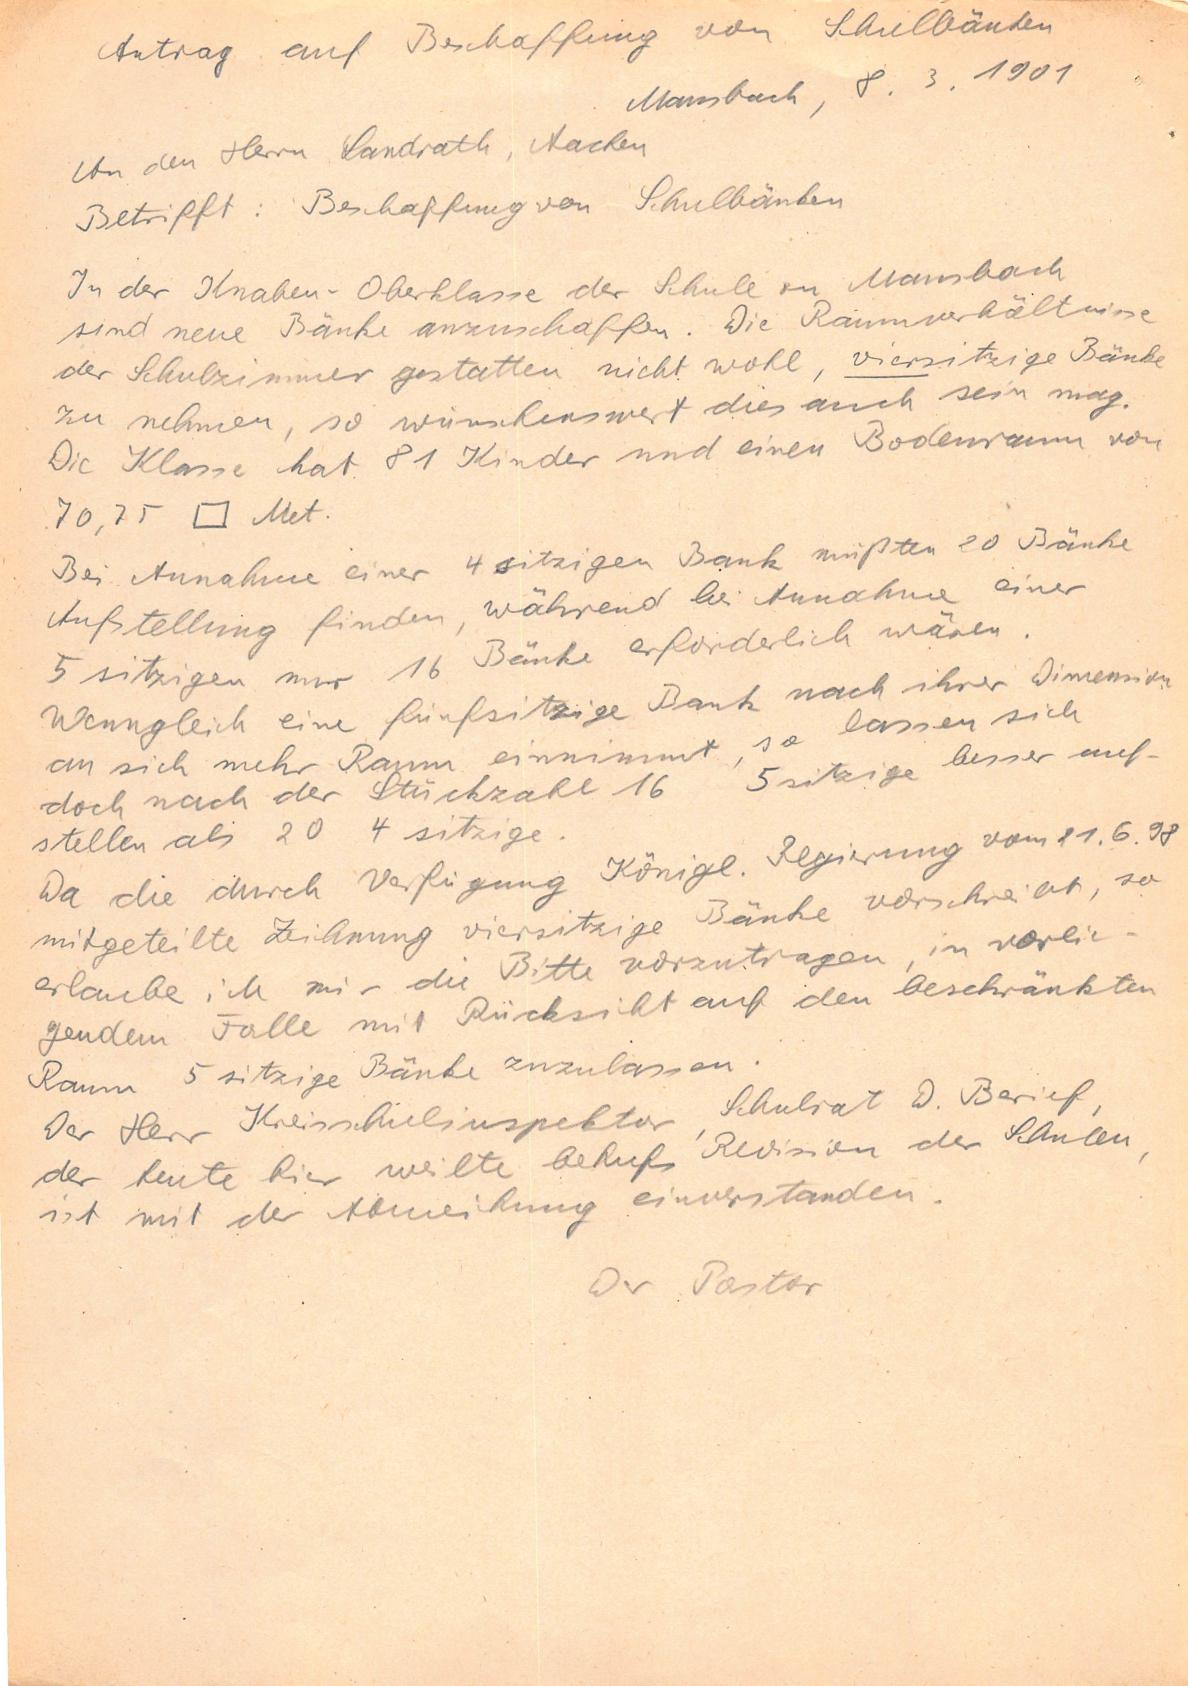 Antrag auf Beschaffung von Schulbänken
Mausbach, 8. 3. 1901
An den Herrn Landrath, Aachen
Betrifft: Beschaffung von Schulbänken
In der Knaben-Oberklasse der Schule in Mausbach
sind neue Bänke anzuschaffen. Die Raumverhältnisse
der Schulzimmer gestatten nicht wohl, viersitzige Bänke
zu nehmen, so wünschenswert dies auch sein mag.
Die Klasse hat 81 Kinder und einen Bodenraum von
70,75 □ Met.
Bei Annahme einer 4 sitzigen Bank müßten 20 Bänke
Aufstellung finden, während bei Annahme einer
5 sitzigen nur 16 Bänke erforderlich wären.
Wenngleich eine fünfsitzige Bank nach ihrer Dimension
an sich mehr Raum einnimmt, so lassen sich
doch nach der Stückzahl 16 5 sitzige besser auf-
stellen als 20 4 sitzige.
Da die durch Verfügung Königl. Regierung vom 21.6.98
mitgeteilte Zeichnung viersitzige Bänke vorschreibt, so
erlaube ich mir die Bitte vorzutragen, in vorlie-
gendem Falle mit Rücksicht auf den beschränkten
Raum 5 sitzige Bänke zuzulassen.
Der Herr Kreisschulinspektor, Schulrat D. Berief,
der heute hier weilte behufs Revision der Schulen,
ist mit der Abweichung einverstanden.
Der Pastor